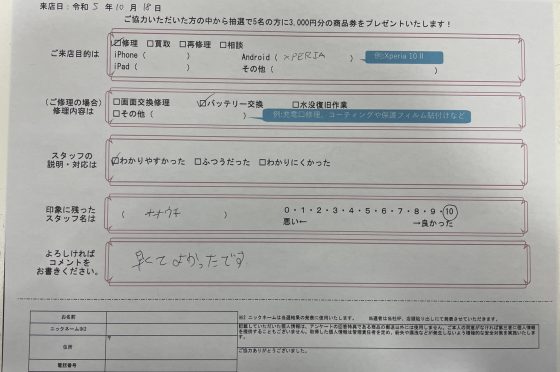 来店日：令和 5 年 10 月 18
ご協力いただいた方の中から抽選で5名の方に3,000円分の商品券をプレゼントいたします！
ご来店目的は
☑修理 □買取 □再修理 □相談
iPhone（ ） Android（ XPERIA ） 例:Xperia 10Ⅱ
iPad（ ） その他（ ）
（ご修理の場合）
修理内容は
□画面交換修理 ☑バッテリー交換 □水没復旧作業
□その他（ ） 例:充電口修理、コーティングや保護フィルム貼付けなど
スタッフの
説明・対応は
☑わかりやすかった □ふつうだった □わかりにくかった
印象に残った
スタッフ名は
（ ナナウチ ）
0・1・2・3・4・5・6・7・8・9・10
悪い← →良かった
よろしければ
コメントを
お書きください。
早くてよかったです
お名前
ニックネーム※2
住所
〒
電話番号
※2 ニックネームは当選結果の発表に使用いたします。 当選者は当社HP、店頭貼り出しにて発表させていただきます。
記載していただいた個人情報は、アンケートの回答特典である商品の郵送以外には使用しません。ご本人の同意がなければ第三者に個人情報
を提供することもございません。取得した個人情報は管理責任者を定め、紛失や漏洩などが発生しないよう積極的な安全対策を実施いたしま
す。
ご協力ありがとうございました。